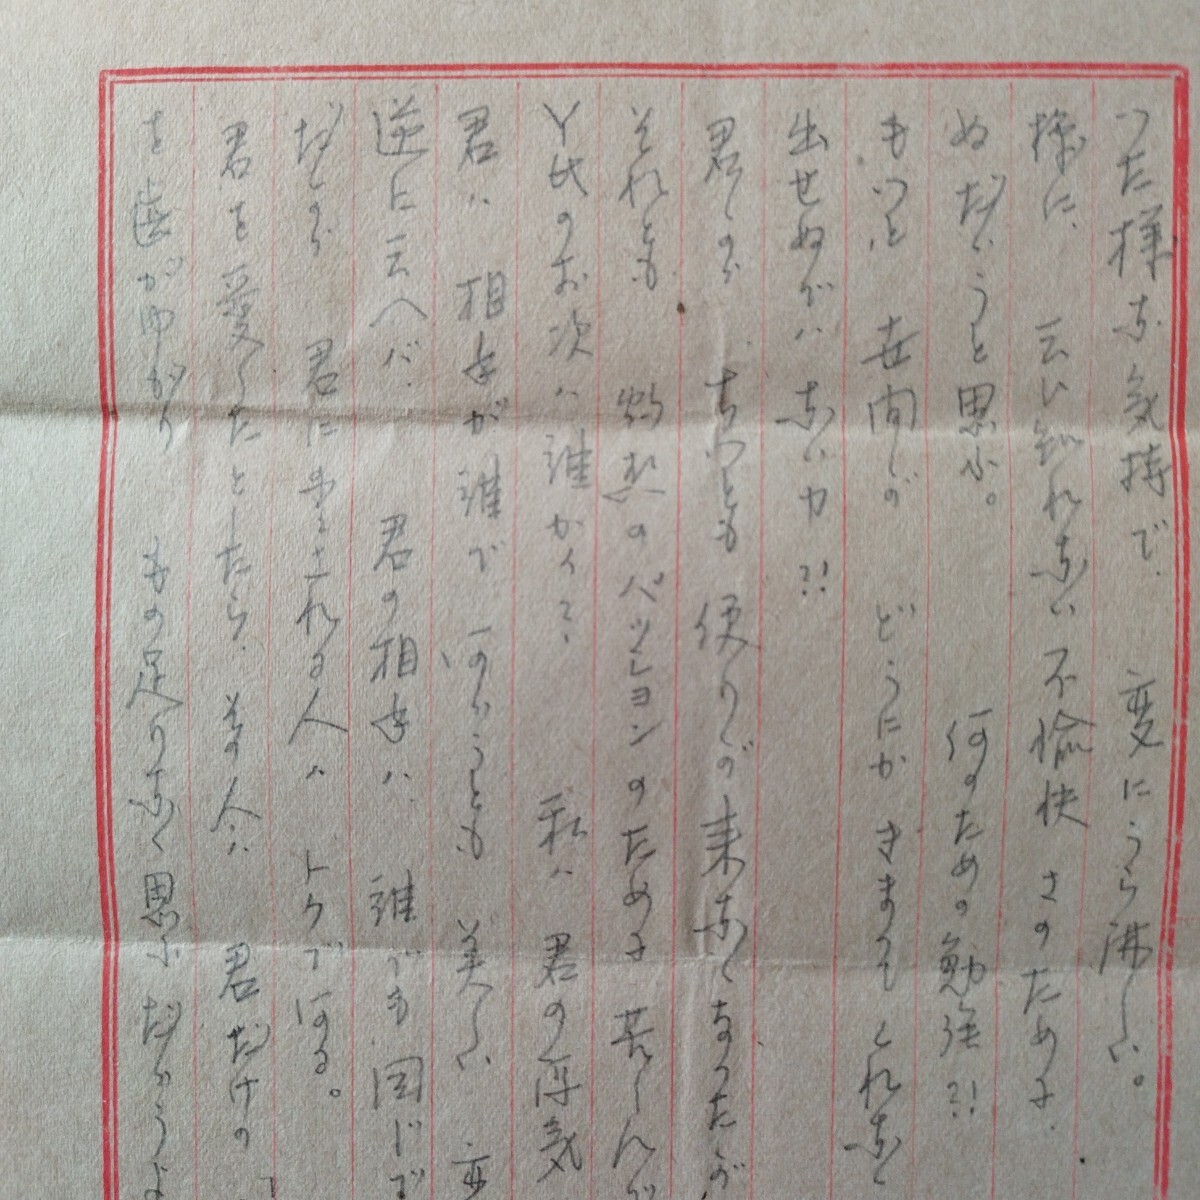 つた様な気持で、変にうら淋しい。
様に、云ひ知れない不愉快さのために、
ぬだらうと思ふ。何のための勉強?!
もつと世間が どうにか きまつて くれなく
出せぬでハないカ?!
君しのが ちつとも 便りが来なくなつたが
それとも 灼熱のパッションのために 苦しんで
Y氏のお次ハ誰かくて 私ハ 君の浮気
君ハ 相手が誰で あらうとも 美しい 変
逆に云へバ、君の相手ハ、誰でも同じで
だから 君に 愛される人ハ トクである。
君を愛したとしたら、その人ハ 君だけの
を歯がゆがり もの足りなく思ふだらうよ